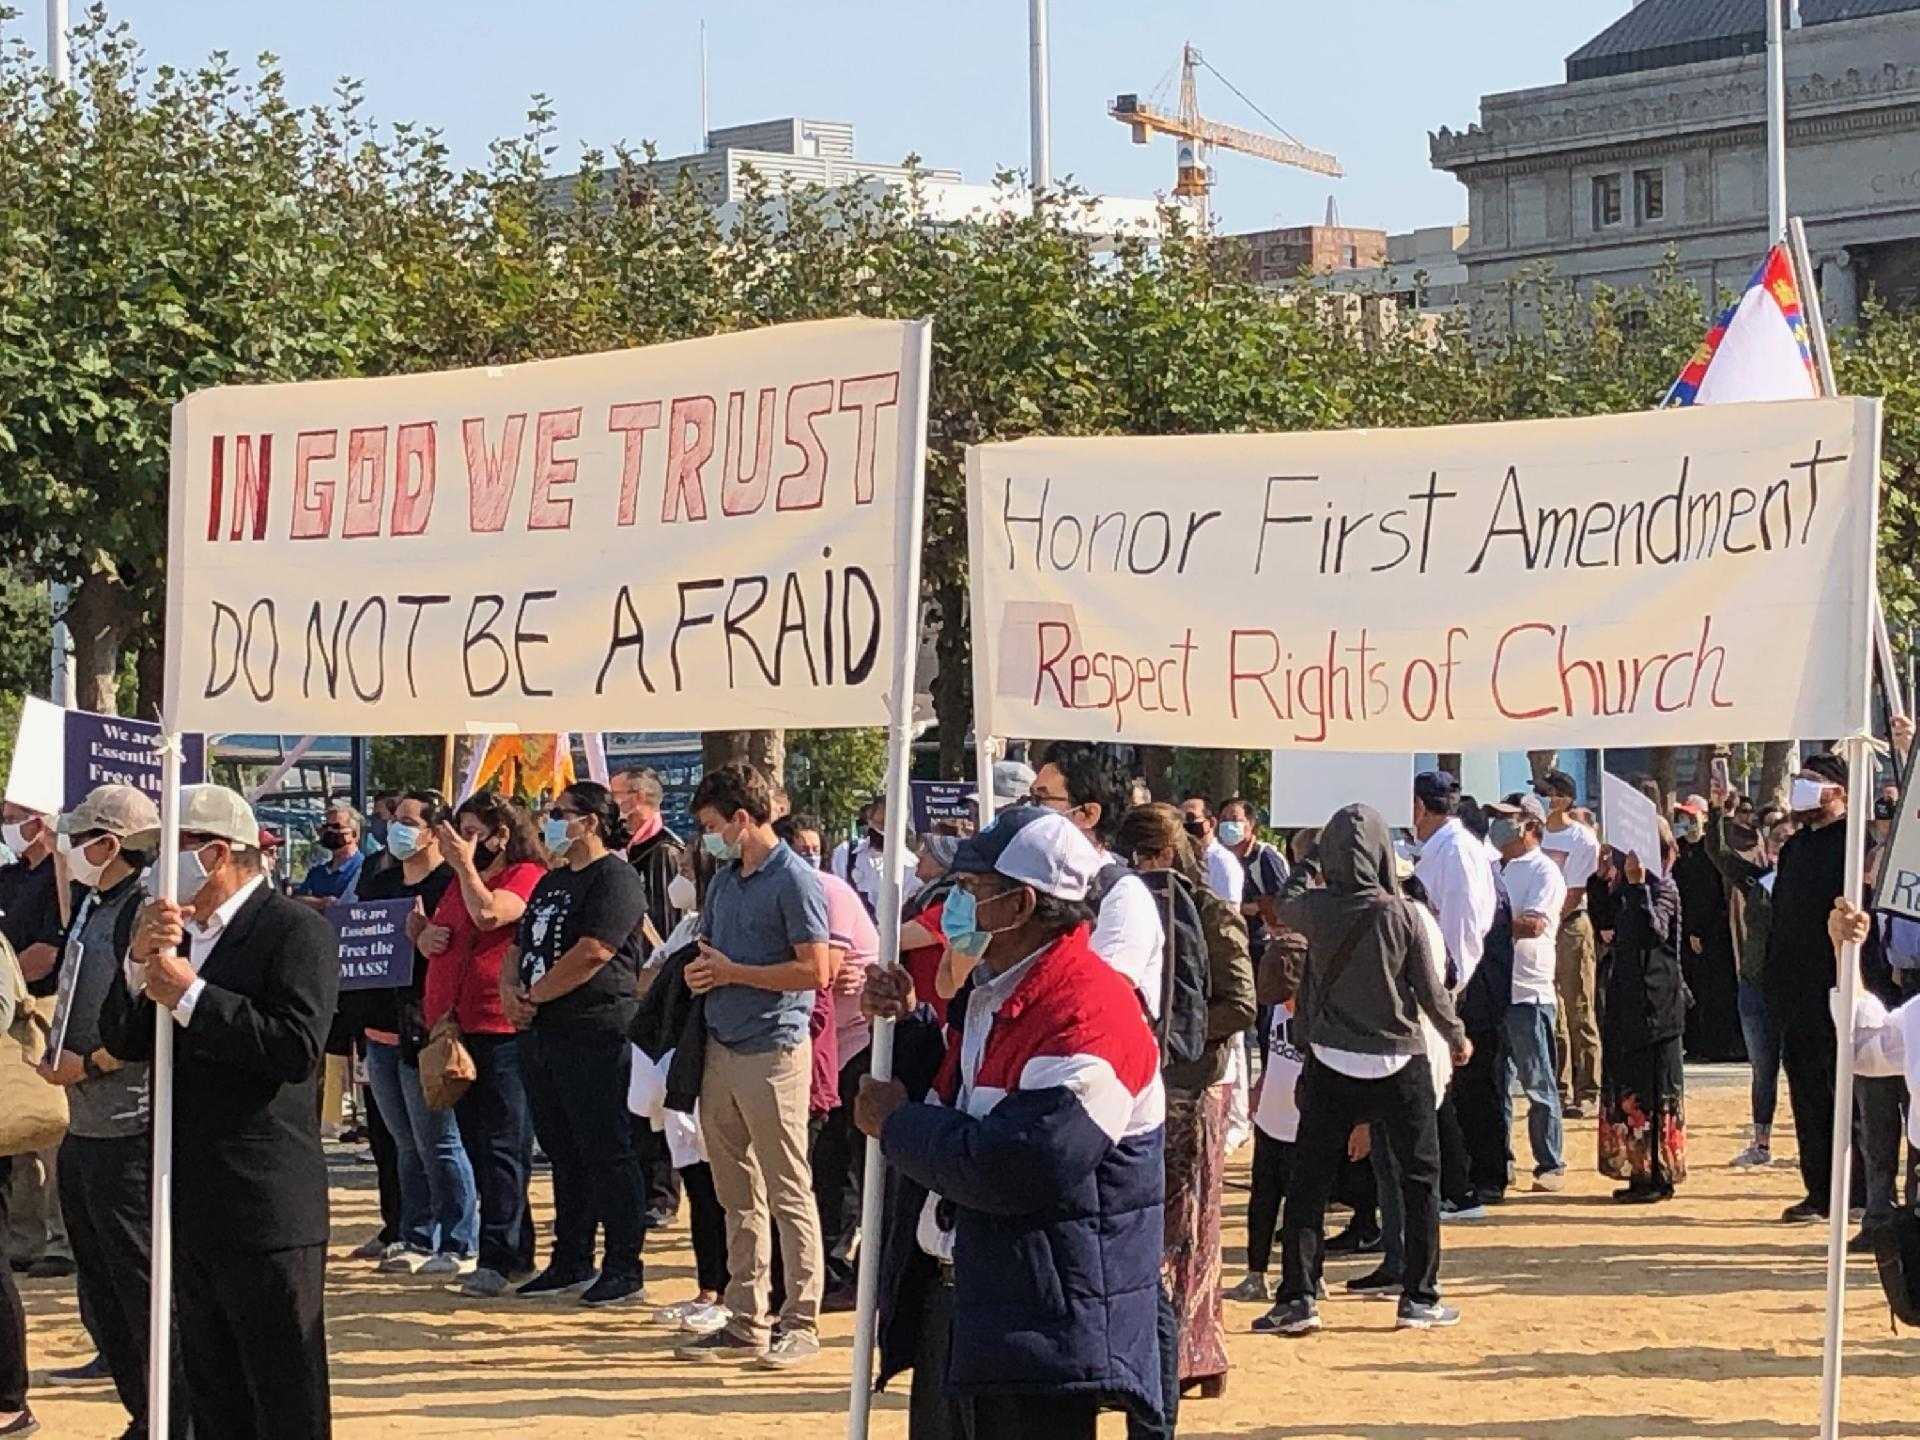 IN GOD WE TRUST
DO NOT BE AFRAID
Honor First Amendment
Respect Rights of Church
We are
Essential:
Free the
We are
Essential:
Free the
MASS!
We are
Free the
adidas